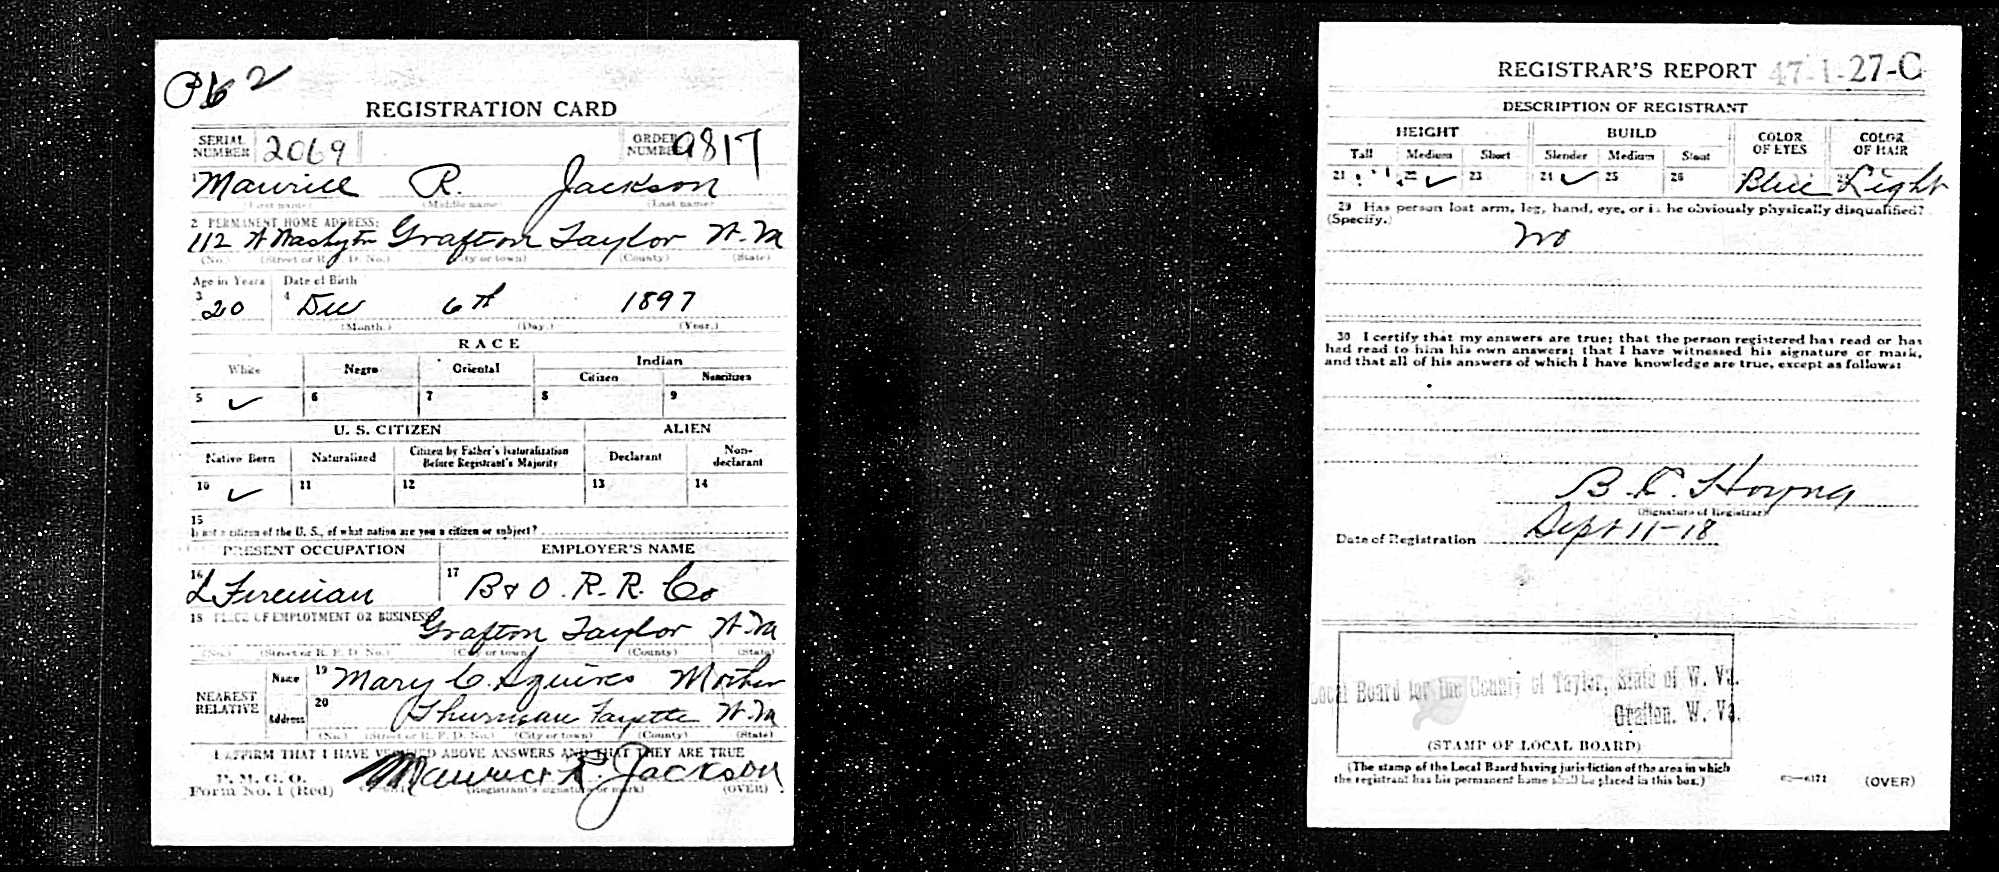 P62
REGISTRATION CARD
SERIAL NUMBER 2069 ORDER NUMBER 9817
1 Maurice R. Jackson
(First name) (Middle name) (Last name)
2 PERMANENT HOME ADDRESS:
112 W Washgtn Grafton Taylor W-Va
(No.) (Street or R. F. D. No.) (City or town) (County) (State)
Age in Years Date of Birth
3 20 4 Dec 6th 1897
(Month.) (Day.) (Year.)
RACE
White Negro Oriental Indian
Citizen Noncitizen
5 ✓ 6 7 8 9
U. S. CITIZEN ALIEN
Native Born Naturalized Citizen by Father's Naturalization Before Registrant's Majority Declarant Non-declarant
10 ✓ 11 12 13 14
15
If not a citizen of the U. S., of what nation are you a citizen or subject?
PRESENT OCCUPATION EMPLOYER'S NAME
16 L Fireman 17 B & O. R. R. Co
18 PLACE OF EMPLOYMENT OR BUSINESS:
Grafton Taylor W-Va
(No.) (Street or R. F. D. No.) (City or town) (County) (State)
NEAREST RELATIVE Name 19 Mary C. Squires Mother
Address 20 Thurmnau Fayette W-Va
(No.) (Street or R. F. D. No.) (City or town) (County) (State)
I AFFIRM THAT I HAVE VERIFIED ABOVE ANSWERS AND THAT THEY ARE TRUE
P. M. G. O.
Form No. 1 (Red) Maurice R. Jackson
(Registrant's signature or mark) (OVER)
REGISTRAR'S REPORT 47-1-27-C
DESCRIPTION OF REGISTRANT
HEIGHT BUILD COLOR OF EYES COLOR OF HAIR
Tall Medium Short Slender Medium Stout
21 22 ✓ 23 24 ✓ 25 26 Blue Light
29 Has person lost arm, leg, hand, eye, or is he obviously physically disqualified?
(Specify.)
no
30 I certify that my answers are true; that the person registered has read or has
had read to him his own answers; that I have witnessed his signature or mark,
and that all of his answers of which I have knowledge are true, except as follows:
(Signature of Registrar)
Date of Registration Sept 11-18
Local Board for the County of Taylor, State of W. Va.
Grafton. W. Va.
(STAMP OF LOCAL BOARD)
(The stamp of the Local Board having jurisdiction of the area in which
the registrant has his permanent home shall be placed in this box.)
(OVER)